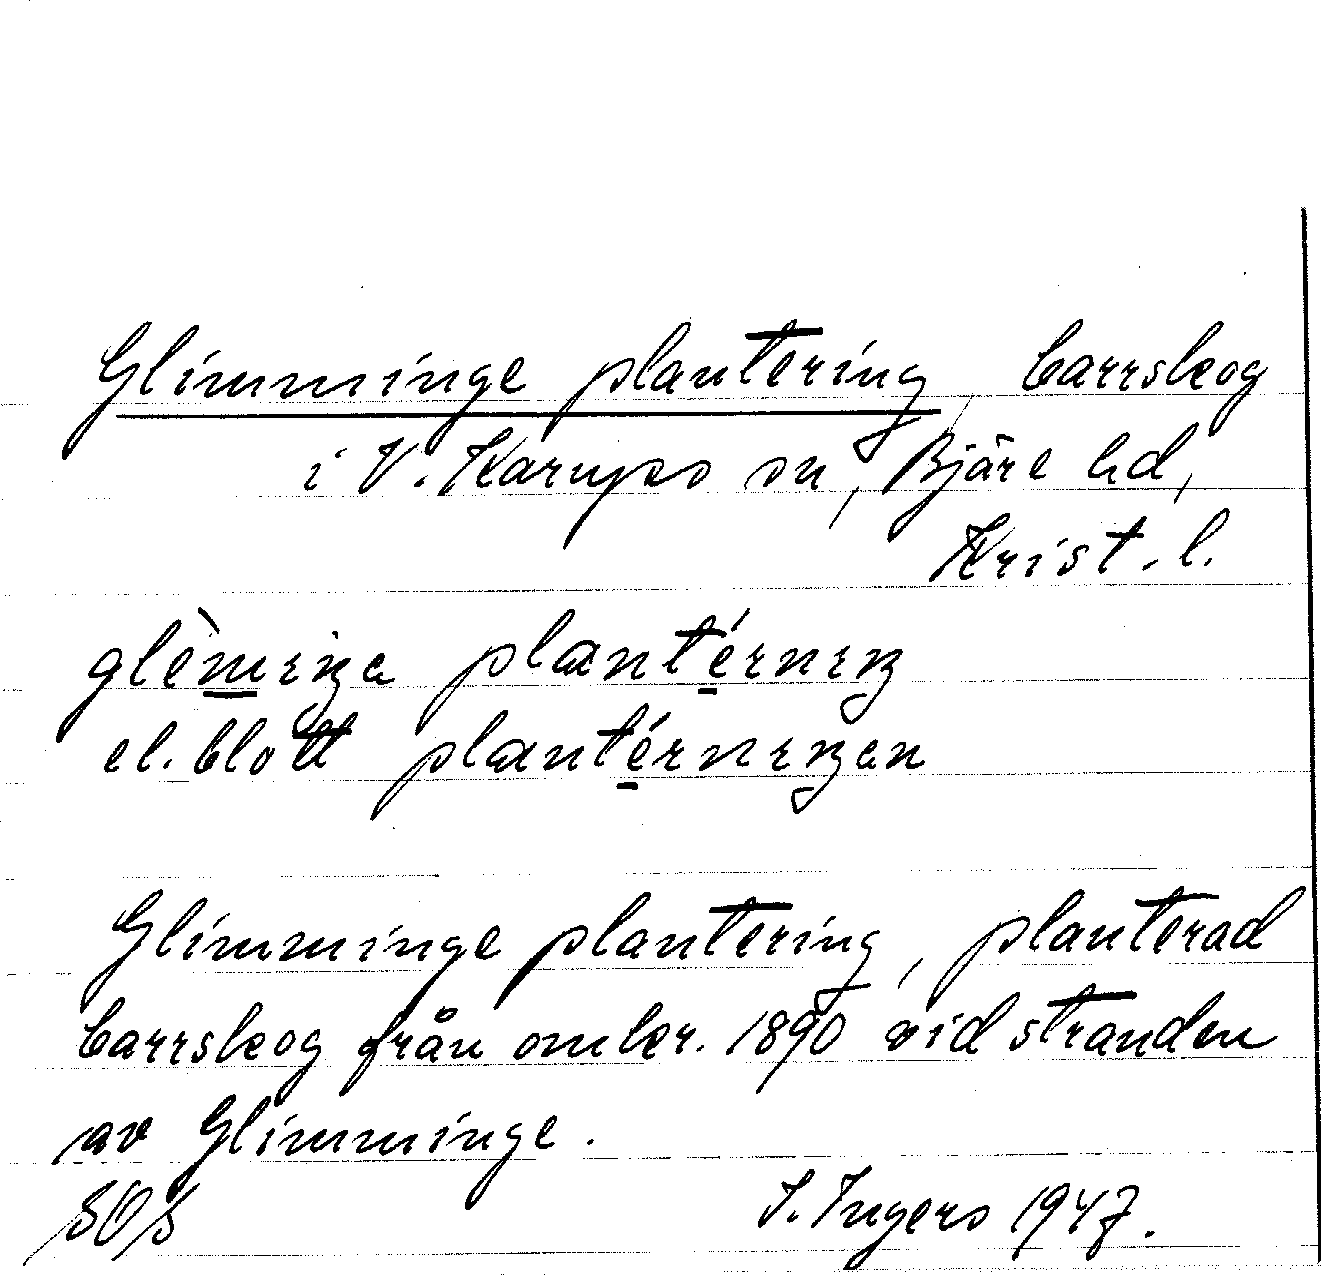 Glimminge plantering barrskog
i V. Karups sn, Bjäre hd,
Krist. l.
glèmiŋa plantérniŋ
el. blott plantérniŋan
Glimminge plantering, planterad
barrskog från omkr. 1890 vid stranden
av Glimminge.
SOS I. Ingers 1947.